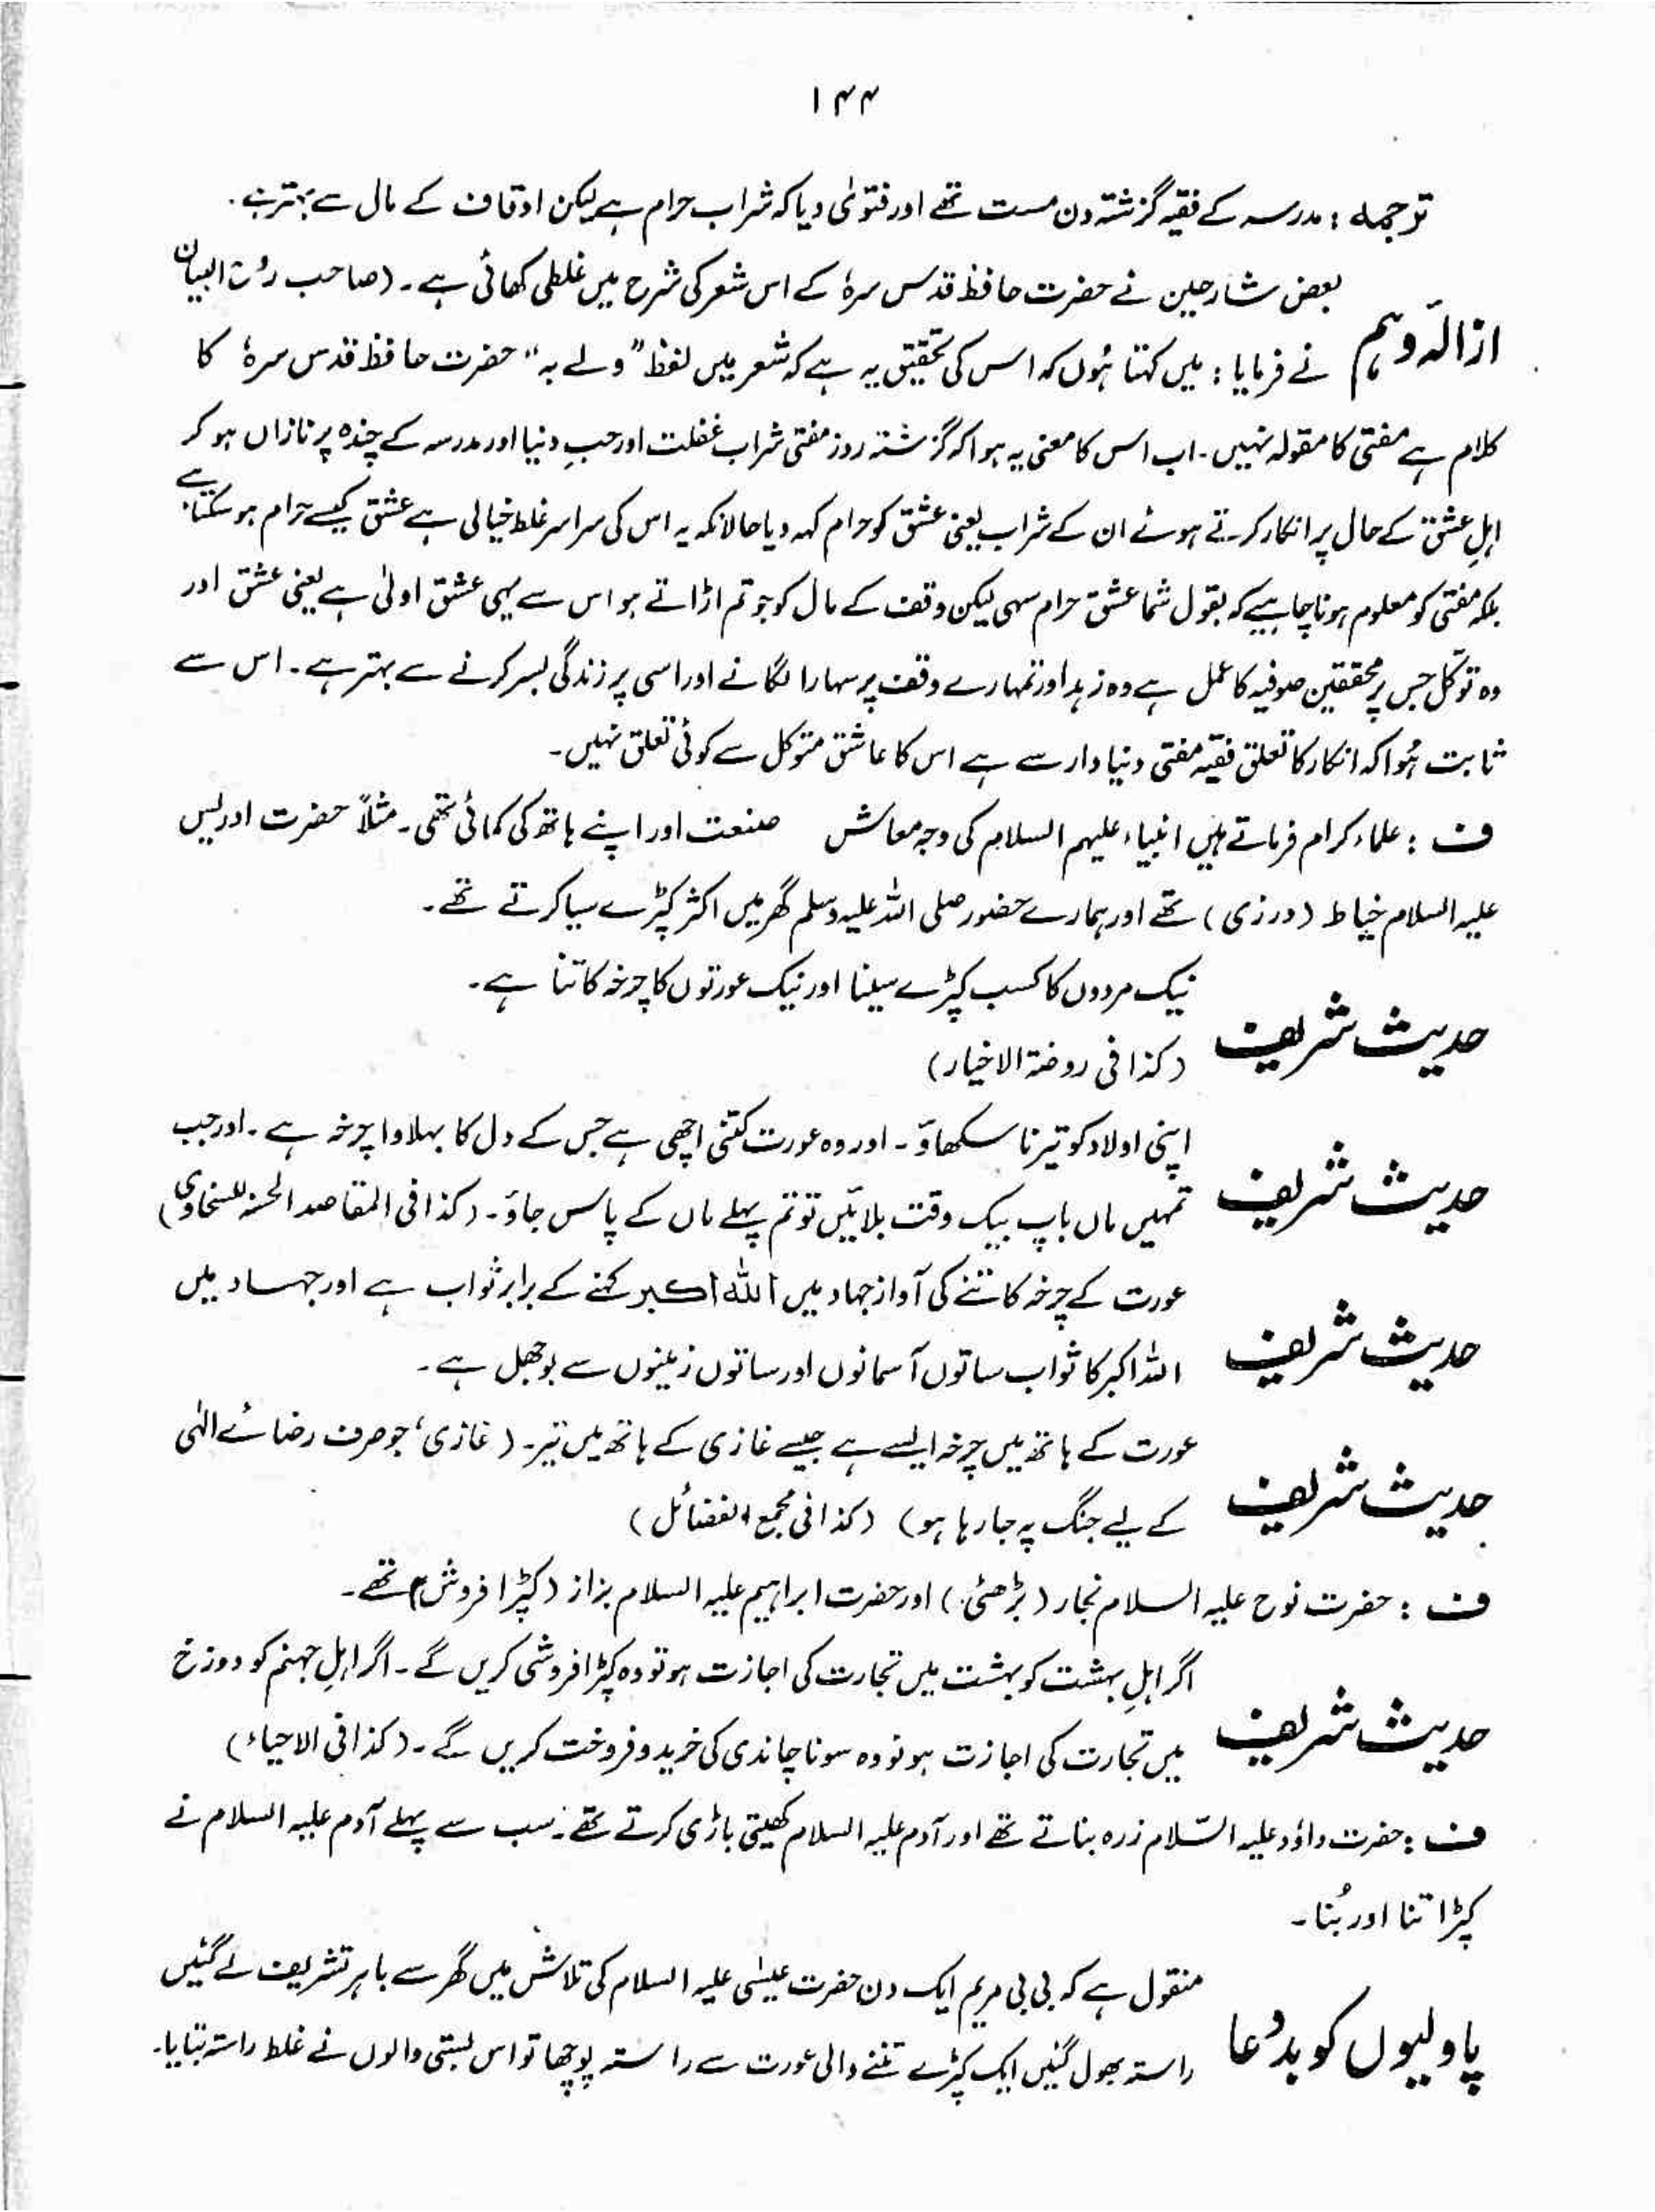 ۱۴۴
ترجمہ : مدرسہ کے فقیہ گزشتہ دن مست تھے اور فتویٰ دیا کہ شراب حرام ہے لیکن اوقاف کے مال سے بہتر ہے۔
ازالۂ وہم
بعض شارحین نے حضرت حافظ قدس سرہٗ کے اس شعر کی شرح میں غلطی کھائی ہے۔ (صاحب روح البیان
نے فرمایا : میں کہتا ہُوں کہ اس کی تحقیق یہ ہے کہ شعر میں لفظ ”ولے بہ“ حضرت حافظ قدس سرہٗ کا
کلام ہے مفتی کا مقولہ نہیں۔ اب اس کا معنی یہ ہوا کہ گزشتہ روز مفتی شراب غفلت اور حبِ دنیا اور مدرسہ کے چندہ پر نازاں ہو کر
اہلِ عشق کے حال پر انکار کرتے ہوئے ان کے شراب یعنی عشق کو حرام کہہ دیا حالانکہ یہ اس کی سراسر غلط خیالی ہے عشق کیسے حرام ہو سکتا ہے
بلکہ مفتی کو معلوم ہونا چاہیے کہ بقول شما عشق حرام سہی لیکن وقف کے مال کو جو تم اڑاتے ہو اس سے یہی عشق اولیٰ ہے یعنی عشق اور
وہ توکّل جس پر محققین صوفیہ کا عمل ہے وہ زہد اور تمہارے وقف پر سہارا لگانے اور اسی پر زندگی بسر کرنے سے بہتر ہے۔ اس سے
ثابت ہُوا کہ انکار کا تعلق فقیہ مفتی دنیا دار سے ہے اس کا عاشق متوکل سے کوئی تعلق نہیں۔
ف : علماء کرام فرماتے ہیں انبیاء علیہم السلام کی وجہ معاش صنعت اور اپنے ہاتھ کی کمائی تھی۔ مثلاً حضرت ادریس
علیہ السلام خیاط (درزی) تھے اور ہمارے حضور صلی اللہ علیہ وسلم گھر میں اکثر کپڑے سیا کرتے تھے۔
حدیث شریف
نیک مردوں کا کسب کپڑے سینا اور نیک عورتوں کا چرخہ کاتنا ہے۔
(کذا فی روضۃ الاخیار)
حدیث شریف
اپنی اولاد کو تیرنا سکھاؤ۔ اور وہ عورت کتنی اچھی ہے جس کے دل کا بہلاوا چرخہ ہے۔ اور جب
تمہیں ماں باپ بیک وقت بلائیں تو تم پہلے ماں کے پاس جاؤ۔ (کذا فی المقاصد الحسنہ للسخاوی)
حدیث شریف
عورت کے چرخہ کاتنے کی آواز جہاد میں اللہ اکبر کہنے کے برابر ثواب ہے اور جہاد میں
اللہ اکبر کا ثواب ساتوں آسمانوں اور ساتوں زمینوں سے بوجھل ہے۔
حدیث شریف
عورت کے ہاتھ میں چرخہ ایسے ہے جیسے غازی کے ہاتھ میں تیر۔ (غازی، جو صرف رضائے الٰہی
کے لیے جنگ پہ جا رہا ہو) (کذا فی مجمع الفضائل)
ف : حضرت نوح علیہ السلام نجار (بڑھئی) اور حضرت ابراہیم علیہ السلام بزاز (کپڑا فروش) تھے۔
حدیث شریف
اگر اہلِ بہشت کو بہشت میں تجارت کی اجازت ہو تو وہ کپڑا فروشی کریں گے۔ اگر اہلِ جہنم کو دوزخ
میں تجارت کی اجازت ہو تو وہ سونا چاندی کی خرید و فروخت کریں گے۔ (کذا فی الاحیاء)
ف : حضرت داؤد علیہ السّلام زرہ بناتے تھے اور آدم علیہ السلام کھیتی باڑی کرتے تھے۔ سب سے پہلے آدم علیہ السلام نے
کپڑا تنا اور بُنا۔
پاولیوں کو بددُعا
منقول ہے کہ بی بی مریم ایک دن حضرت عیسٰی علیہ السلام کی تلاش میں گھر سے باہر تشریف لے گئیں
راستہ بھول گئیں ایک کپڑے تننے والی عورت سے راستہ پوچھا تو اس بستی والوں نے غلط راستہ بتایا۔